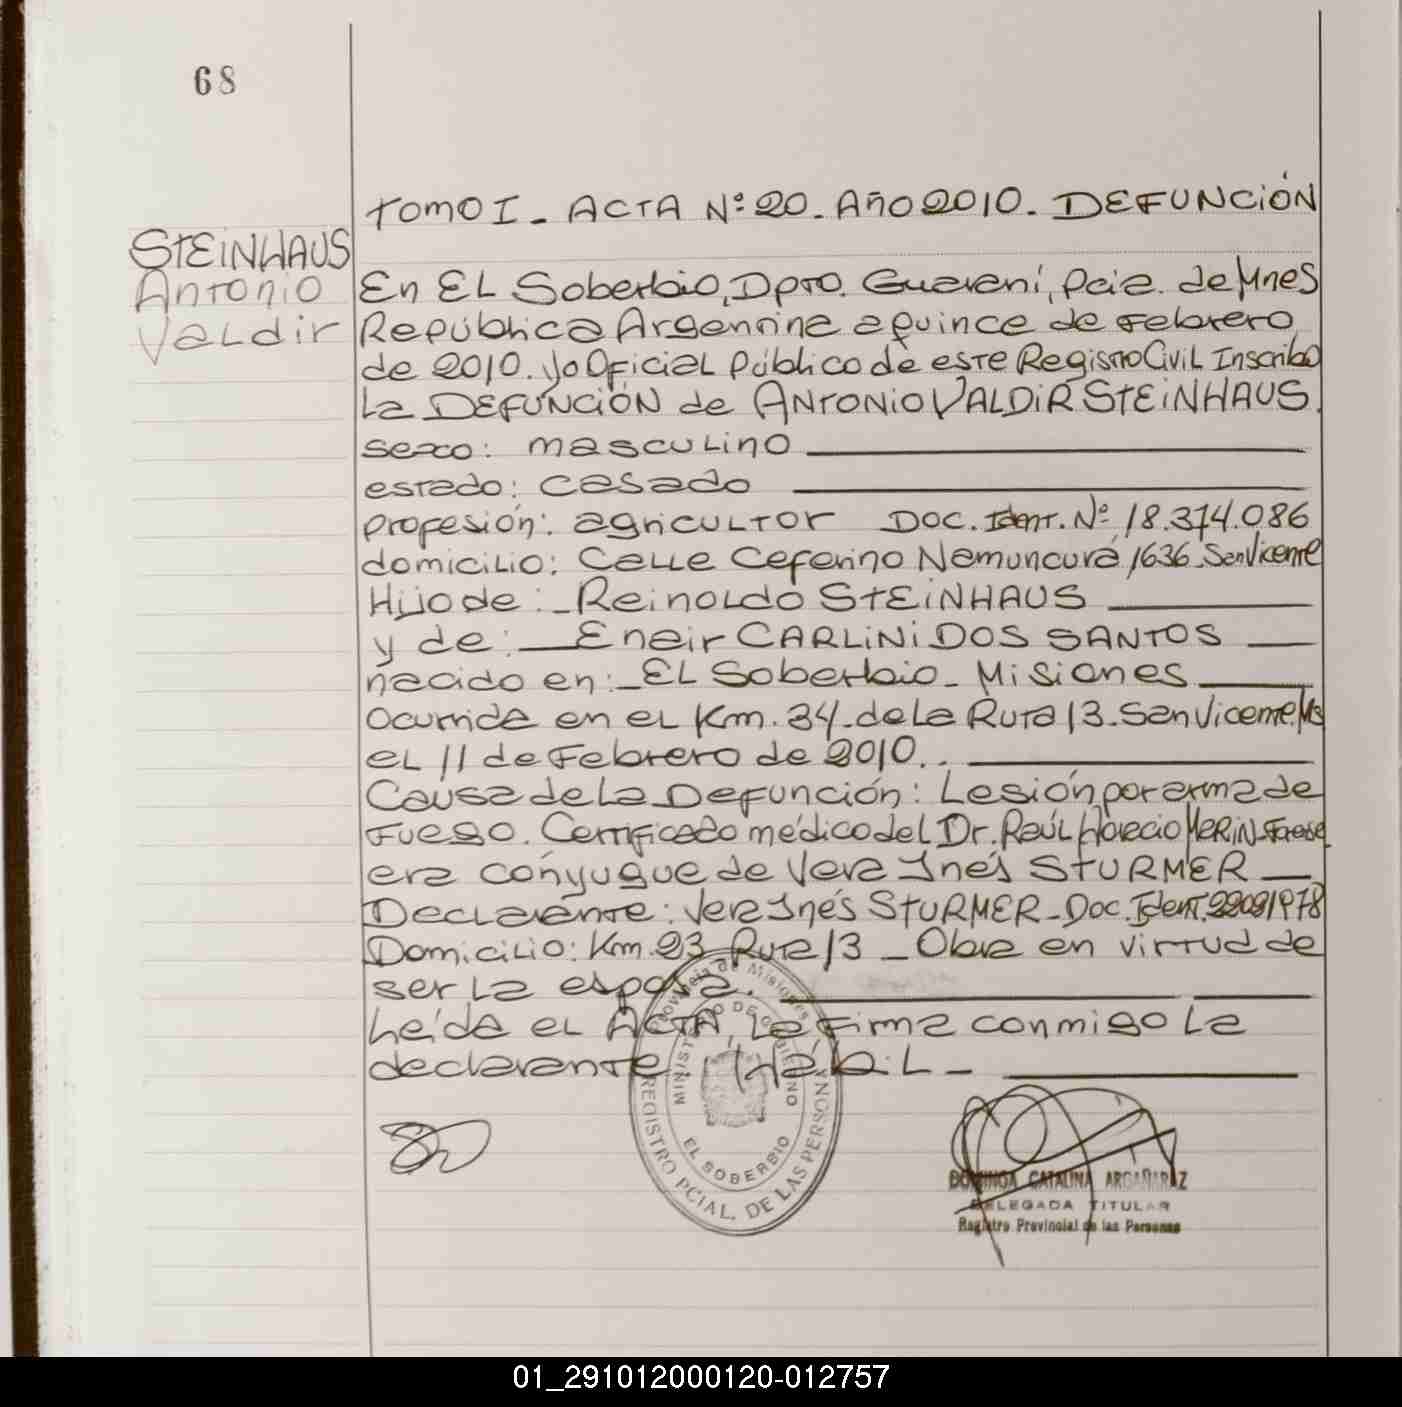 68
TOMO I - ACTA Nº 20. Año 2010. DEFUNCIÓN
STEINHAUS
Antonio
Valdir
En EL Soberbio, Dpto. Guaraní, Pcia. de Mnes
República Argentina a quince de Febrero
de 2010. yo Oficial Público de este Registro Civil Inscribo
La DEFUNCIÓN de ANTONIO VALDIR STEINHAUS.
sexo: masculino
estado: casado
profesión: agricultor Doc. Ident. Nº 18.374.086
domicilio: Calle Ceferino Namuncurá 1636 San Vicente
Hijo de: Reinoldo STEINHAUS
y de: Enair CARLINI DOS SANTOS
nacido en: EL Soberbio - Misiones
Ocurrida en el Km. 34 - de La Ruta 13 - San Vicente, Ms
el 11 de Febrero de 2010..
Causa de la Defunción: Lesión por arma de
Fuego. Certificado médico del Dr. Raúl Horacio MERIN
era conyugue de Vera Inés STURMER
Declarante: Vera Inés STURMER - Doc. Ident. 22091978
Domicilio: Km. 23 Ruta 13 - Obra en virtud de
ser la esposa.
Leída el ACTA, La Firma conmigo La
declarante Hábil -
Provincia de Misiones
MINISTERIO DE GOBIERNO
EL SOBERBIO
REGISTRO PCIAL. DE LAS PERSONAS
DOMINGA CATALINA ARGAÑARAZ
DELEGADA TITULAR
Registro Provincial de las Personas
01_291012000120-012757